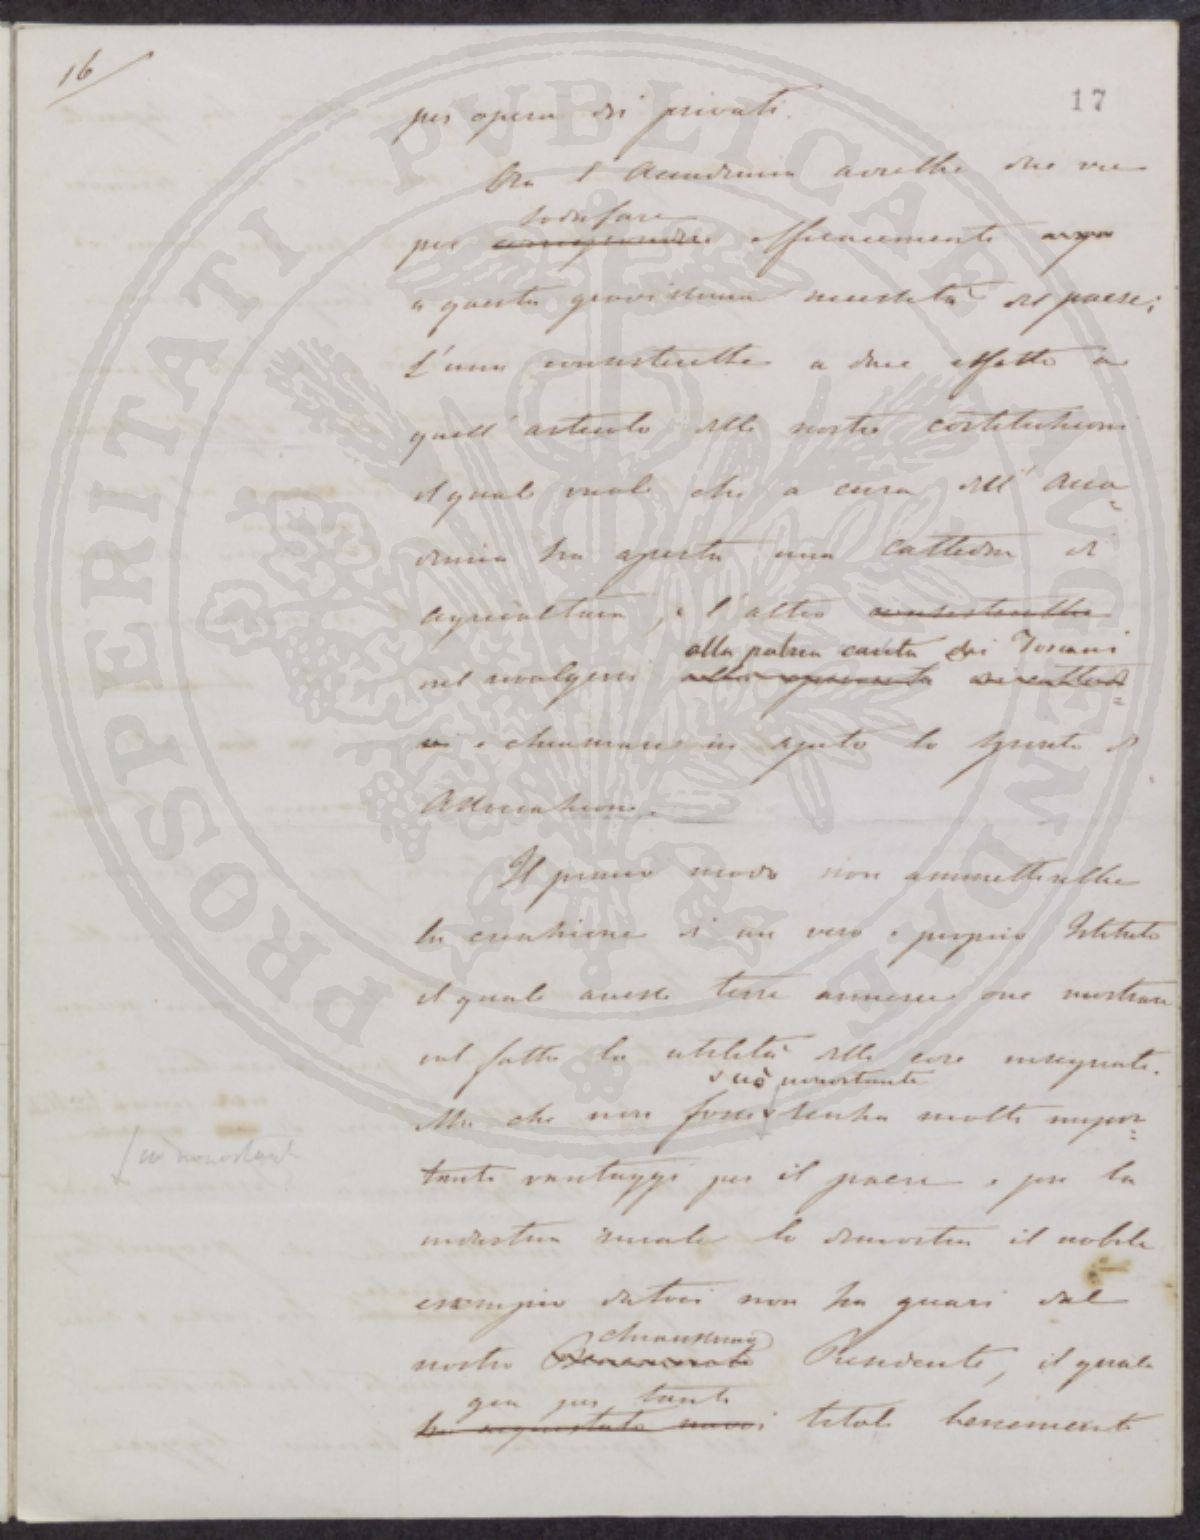 16
17
per opera dei privati.
Ora l'Accademia avrebbe due vie
sodisfare
per corrispondere efficacemente
a questa gravissima necessità del paese;
l'una consisterebbe a dare effetto a
quell'articolo delle nostre costituzioni
il quale vuole che a cura dell'Acca=
demia sia aperta una Cattedra di
agricoltura, e l'altro consisterebbe
alla patria carità dei Toscani
nel rivolgersi alla
e chiamare in ajuto lo spirito di
Associazione.
Il primo modo non ammetterebbe
la creazione di un vero e proprio Istituto
il quale avesse terre annesse ove mostrare
sul fatto la utilità delle cose insegnate.
ciò nonostante
Ma che non fosse senza molti impor=
ciò nonostante
tanti vantaggi per il paese e per la
industria rurale lo dimostra il nobile
esempio datoci non ha guari dal
chiarissimo
nostro Presidente, il quale
già per tanti
ha acquistato nuovi titoli benemerito
PROSPERITATI PUBLICAE AUGENDAE